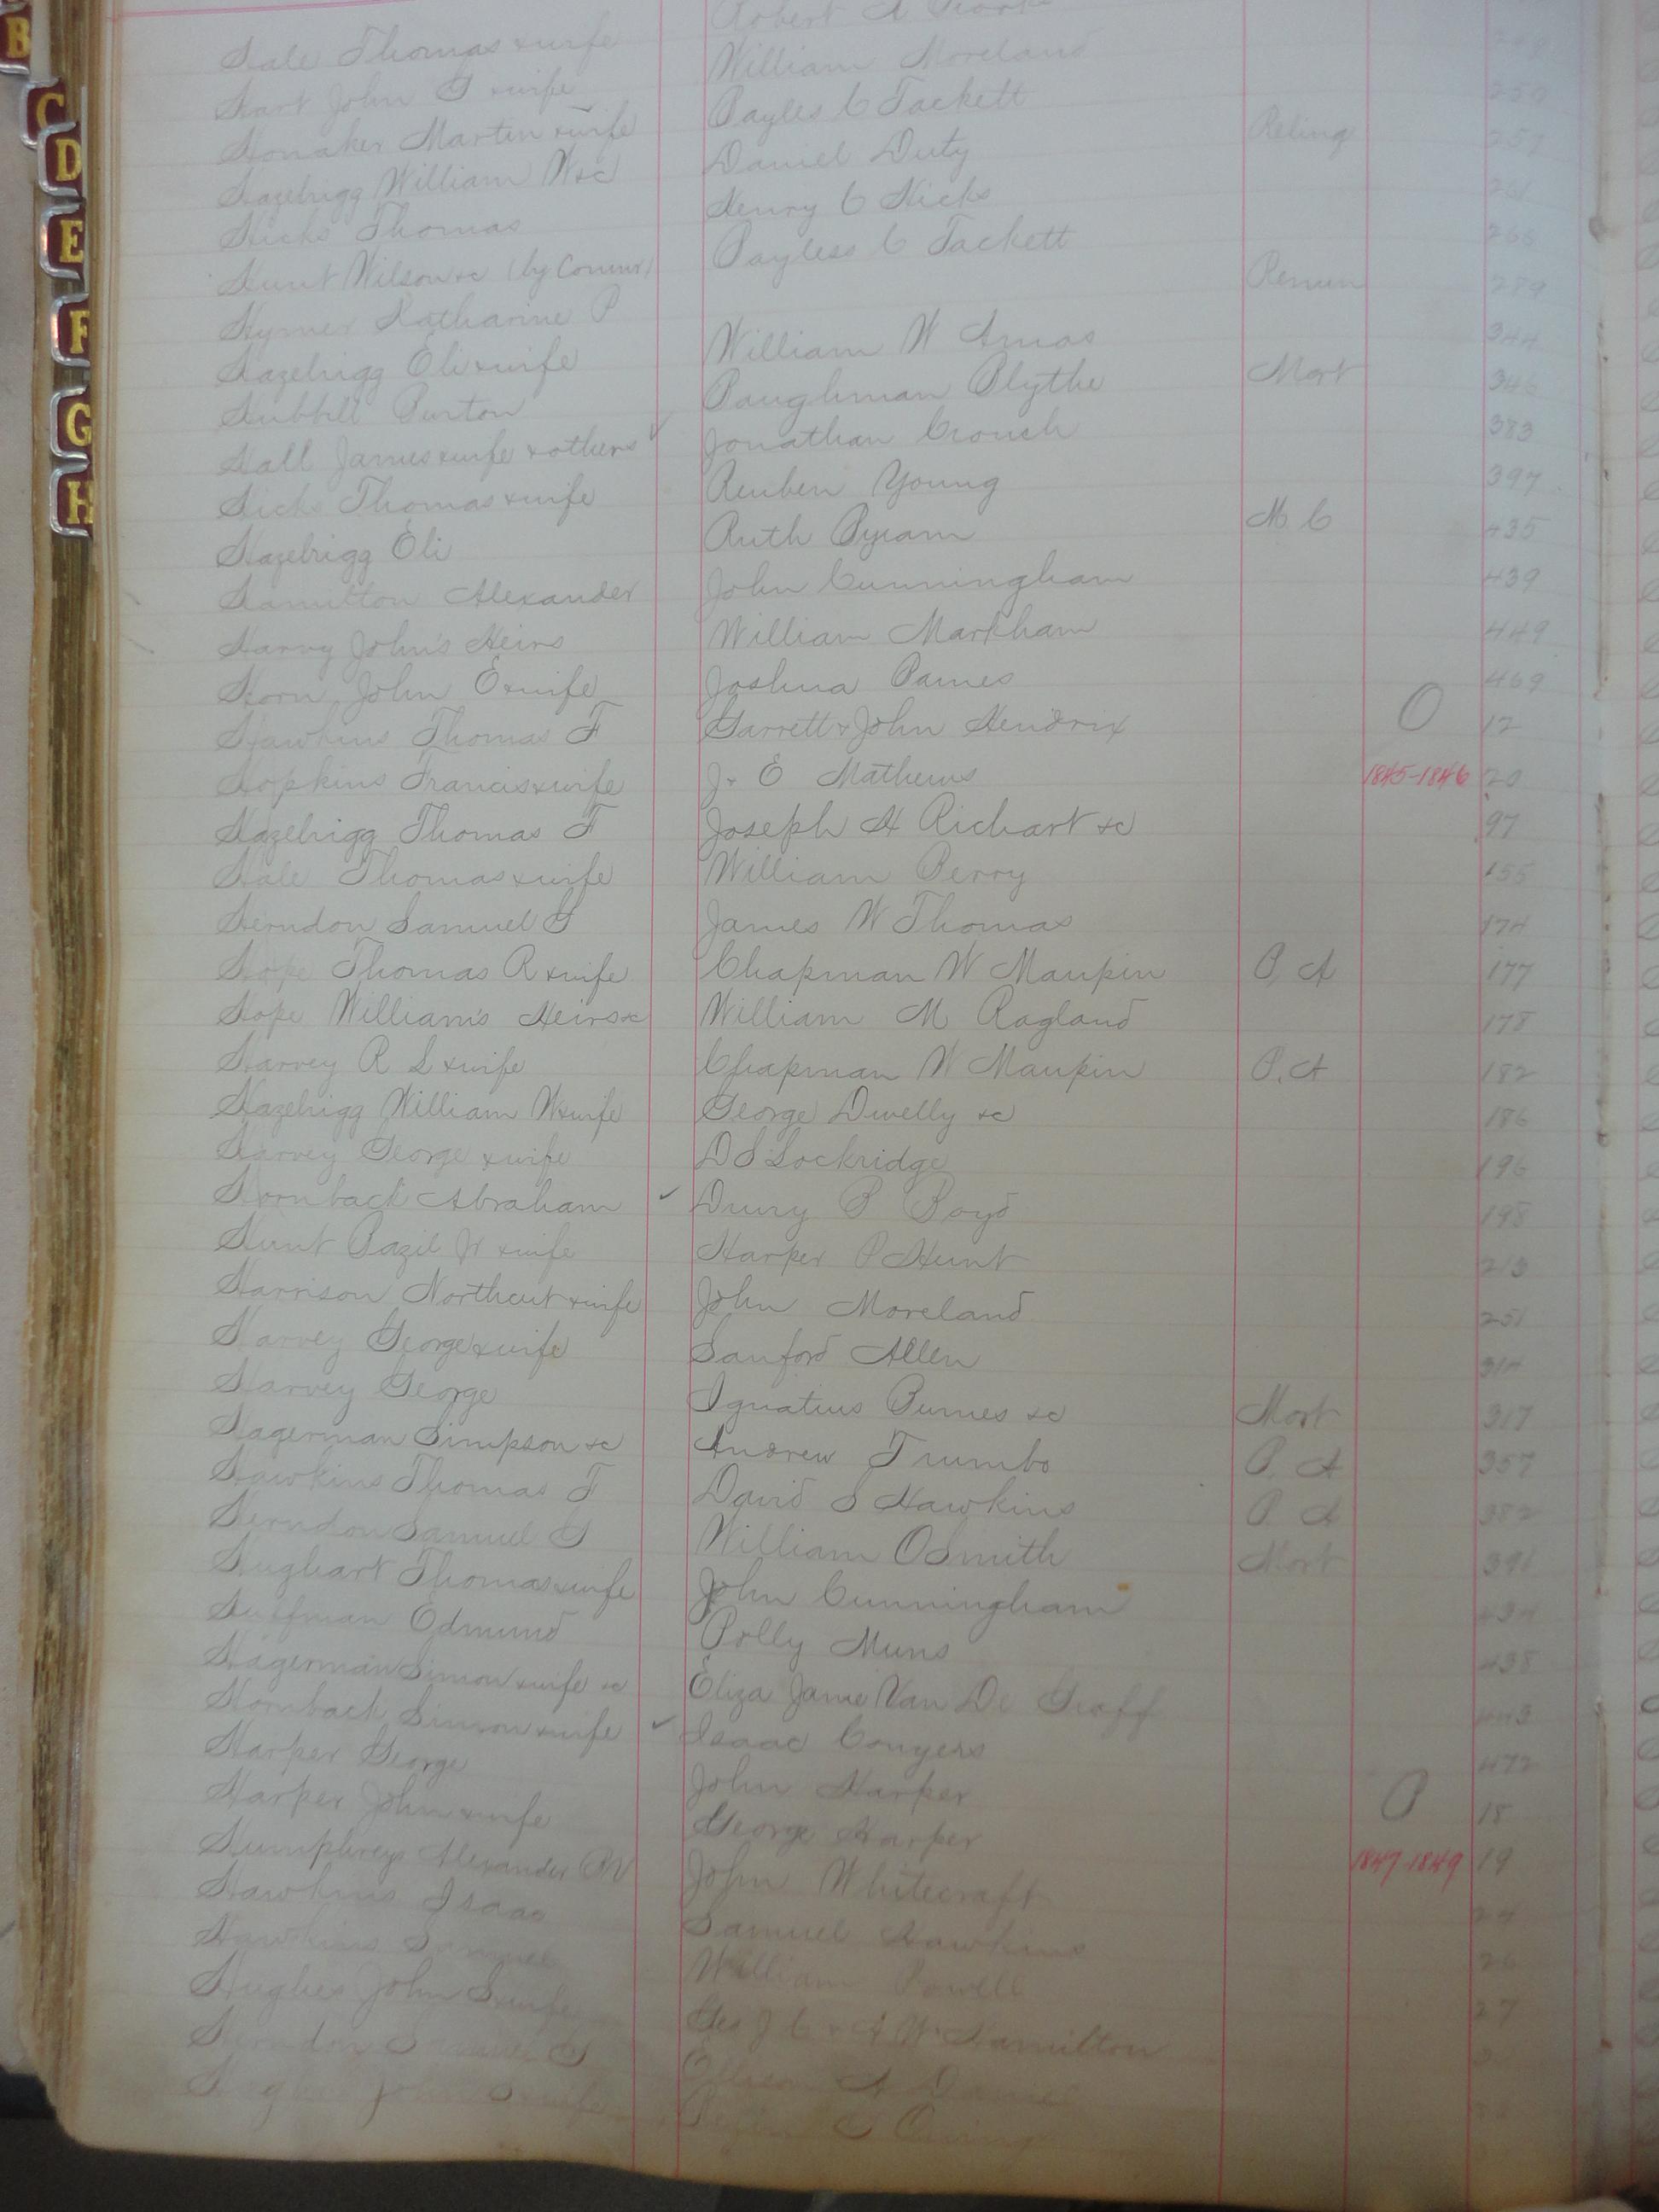 B
C
D
E
F
G
H
Robert A
Hale Thomas & wife William Moreland
Hart John G & wife Bayles C Tackett 250
Honaker Martin & wife Daniel Duty Relinq 257
Hazelrigg William W &c Henry C Hicks 261
Hicks Thomas Bayless C Tackett 266
Hunt Wilson &c (by Commr) Renun 289
Hymer Katharine P William W Amos 344
Hazelrigg Eli & wife Baughman Blythe Mort 346
Hubbill Burton Jonathan Crouch 383
Hall James & wife & others Reuben Young 397
Hicks Thomas & wife Ruth Byram M C 435
Hazelrigg Eli John Cunningham 439
Hamilton Alexander William Markham 449
Harvy John's Heirs Joshua Barnes 469
Horn John E & wife Garrett & John Hendrix O 12
Hawkins Thomas F J & E Mathews 1845-1846 20
Hopkins Francis & wife Joseph H Richart &c 97
Hazelrigg Thomas F William Perry 155
Hale Thomas & wife James W Thomas 174
Herndon Samuel G Chapman W Maupin P. A 177
Hope Thomas R & wife William M Ragland 178
Hope William's Heirs &c Chapman W Maupin P. A 182
Harvey R S & wife George Dwelly &c 186
Hazelrigg William W & wife D S Lockridge 196
Harvey George & wife Drury B Boyd 198
Hornback Abraham Harper P Hunt 213
Hunt Bazil Jr & wife John Moreland 251
Harrison Northcut & wife Sanford Allen 314
Harvey George & wife Ignatius Burnes &c Mort 317
Harvey George Andrew Trumbo P. A 357
Hagerman Simpson &c David S Hawkins P A 382
Hawkins Thomas F William O Smith Mort 391
Herndon Samuel G John Cunningham 434
Hughart Thomas & wife Polly Muns 438
Huffman Edmund Eliza Jane Van De Graff 443
Hagerman Simon & wife &c Isaac Conyers 472
Hornback Simon & wife John Harper P 18
Harper George George Harper 1847-1849 19
Harper John & wife John Whitecraft 24
Humphreys Alexander Samuel Hawkins 26
Hawkins Isaac William Powell 27
Hawkins Samuel Hamilton
Hughes John S & wife
Herndon Samuel G
Hughes John S & wife